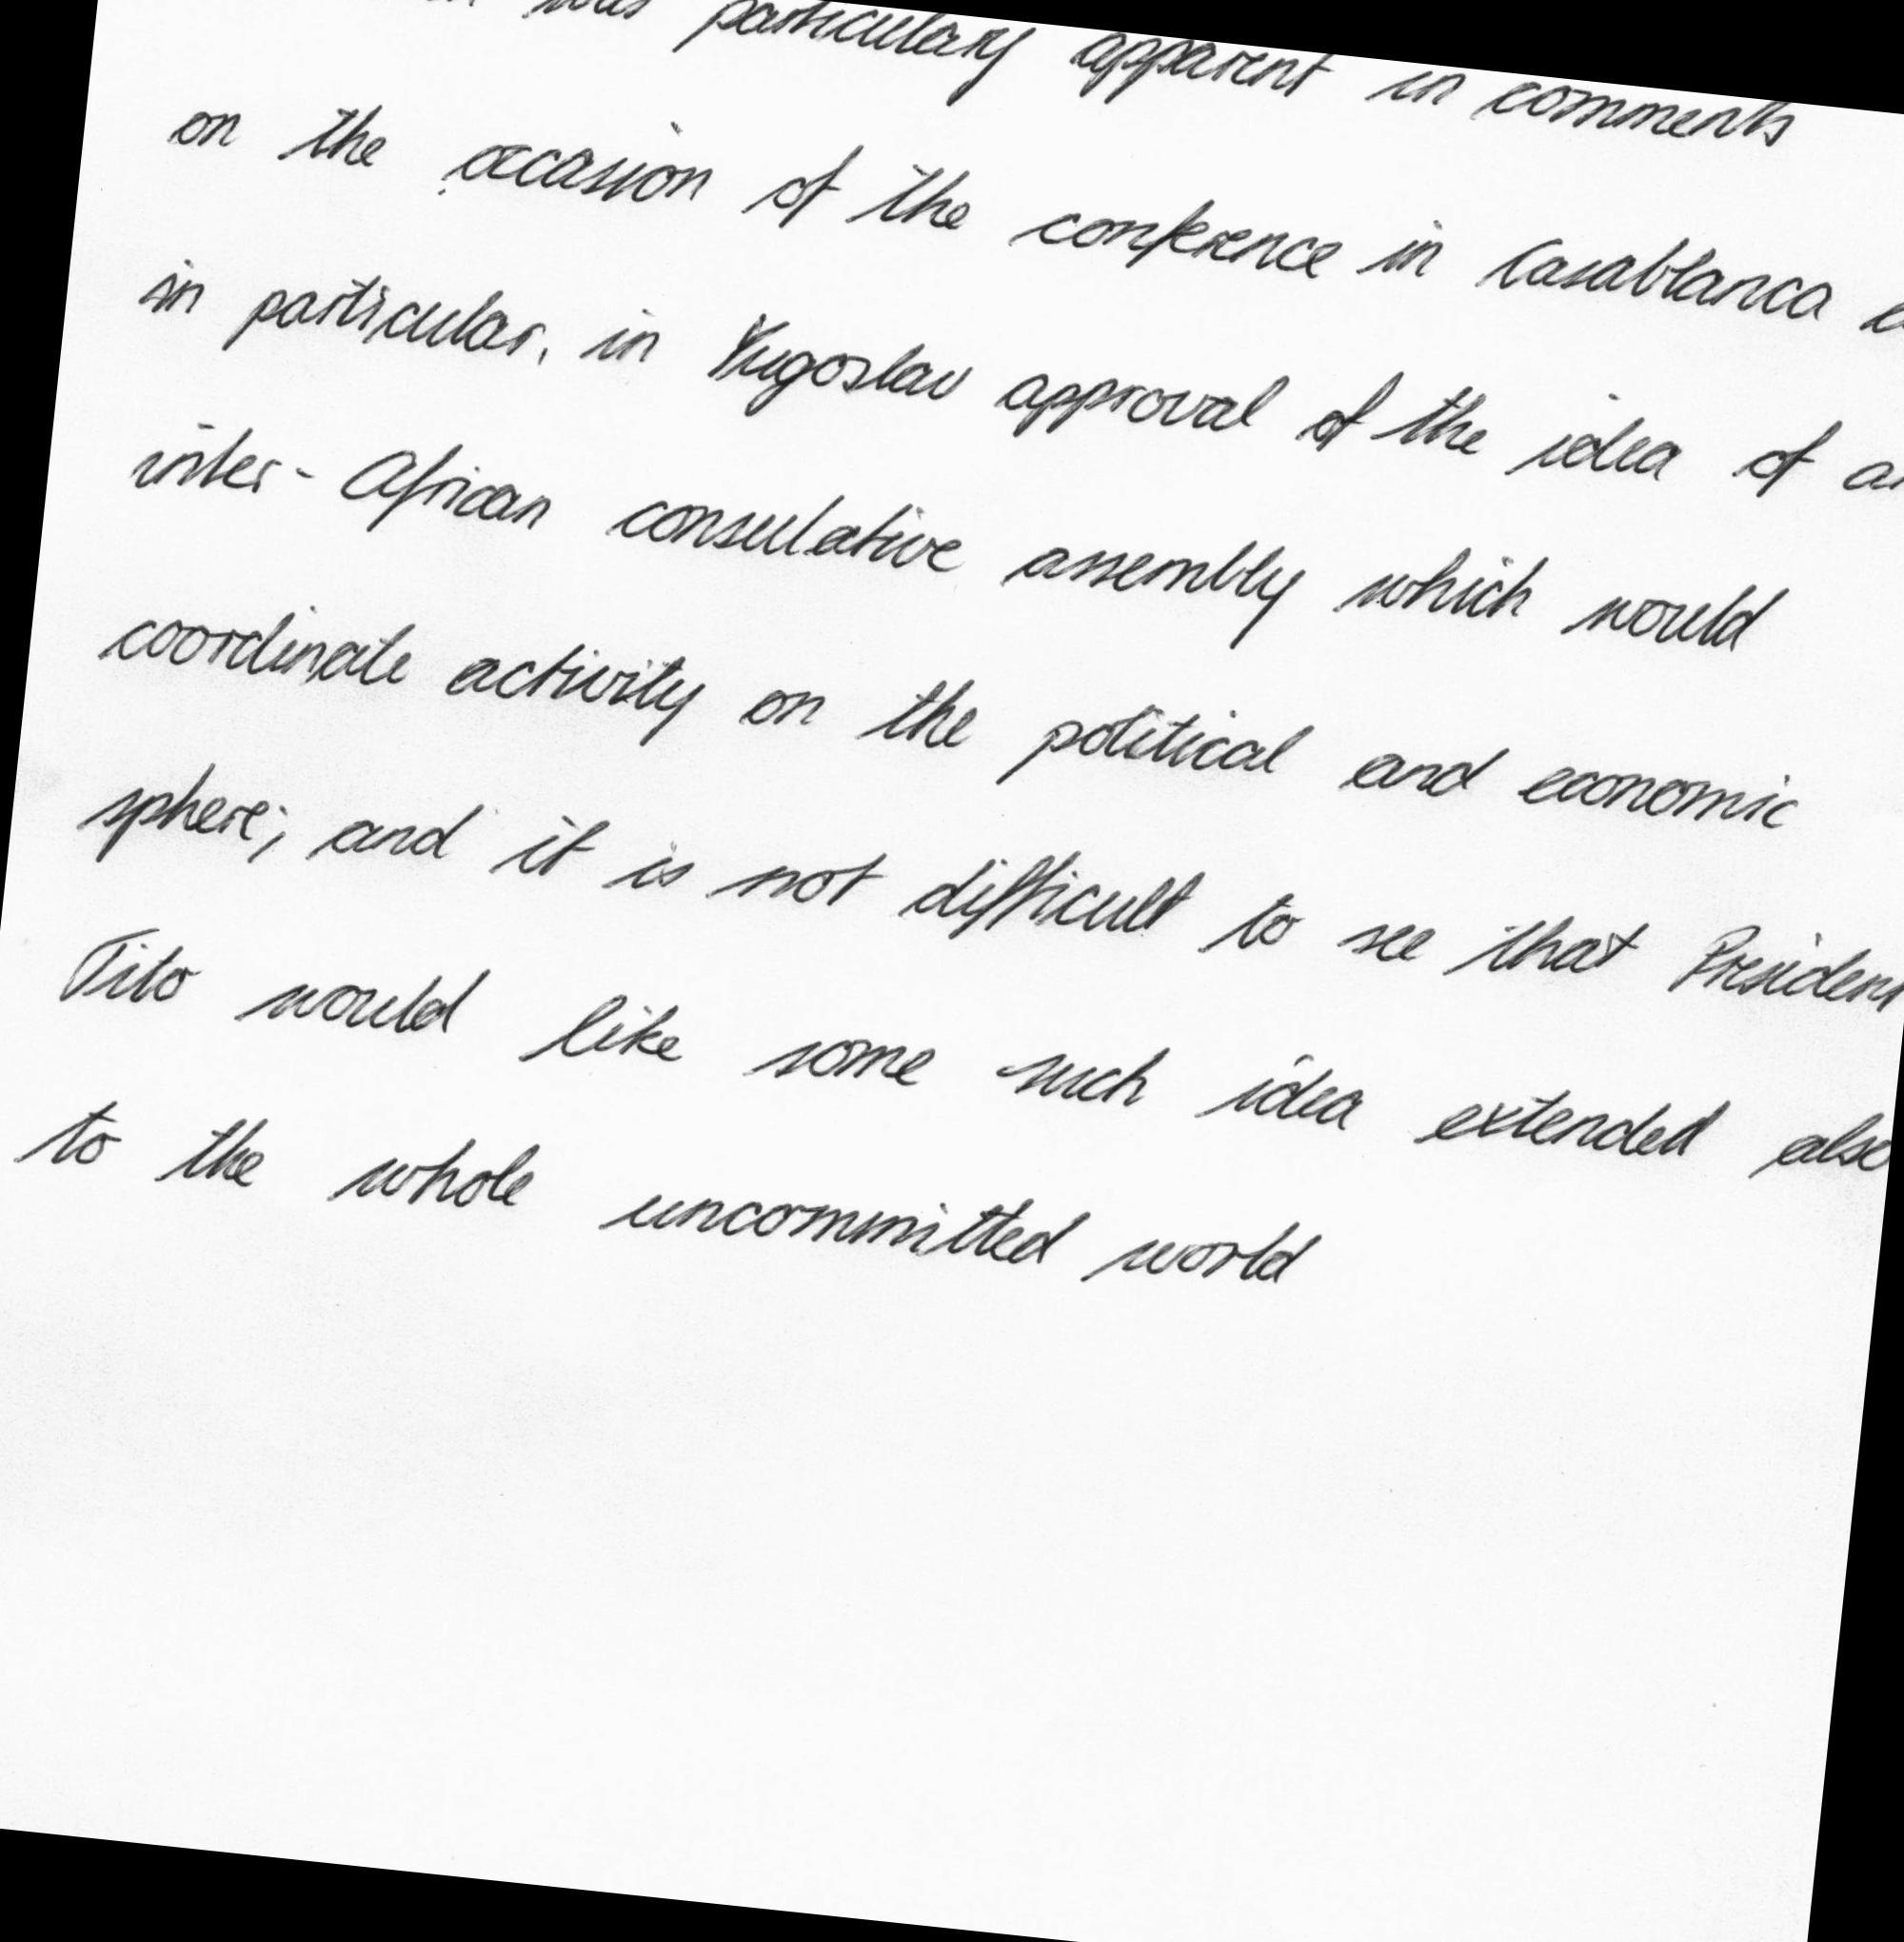 was particulary apparent in comments
on the occasion of the conference in Casablanca
in particular, in Yugoslav approval of the idea of
inter-African consulative assembly which would
coordinate activity on the political and economic
sphere; and it is not difficult to see that President
Tito would like some such idea extended also
to the whole uncommitted world